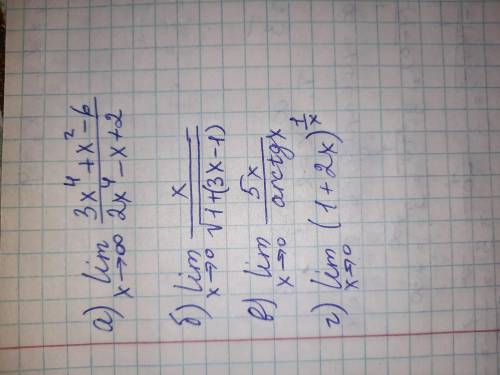 а) lim x→∞ (3x⁴ + x² − 6)/(2x⁴ − x + 2)
б) lim x→0 x/√(1+(3x−1))
в) lim x→0 5x/arctgx
г) lim x→0 (1+2x)^(1/x)